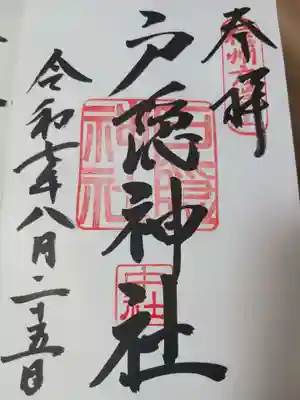 奉拝
戸隠神社
令和七年八月二十五日
戸隠神社
中社